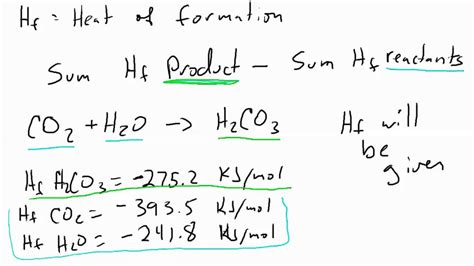 Hf = Heat of formation
Sum Hf Product - Sum Hf reactants
CO2 + H2O → H2CO3
Hf will
be
given
Hf H2CO3 = -275.2 KJ/mol
Hf CO2 = -393.5 KJ/mol
Hf H2O = -241.8 KJ/mol